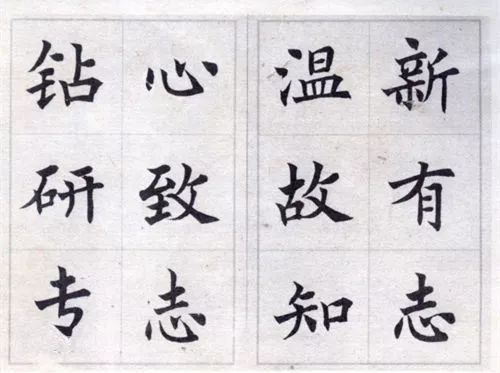 钻研专
心致志
温故知
新有志